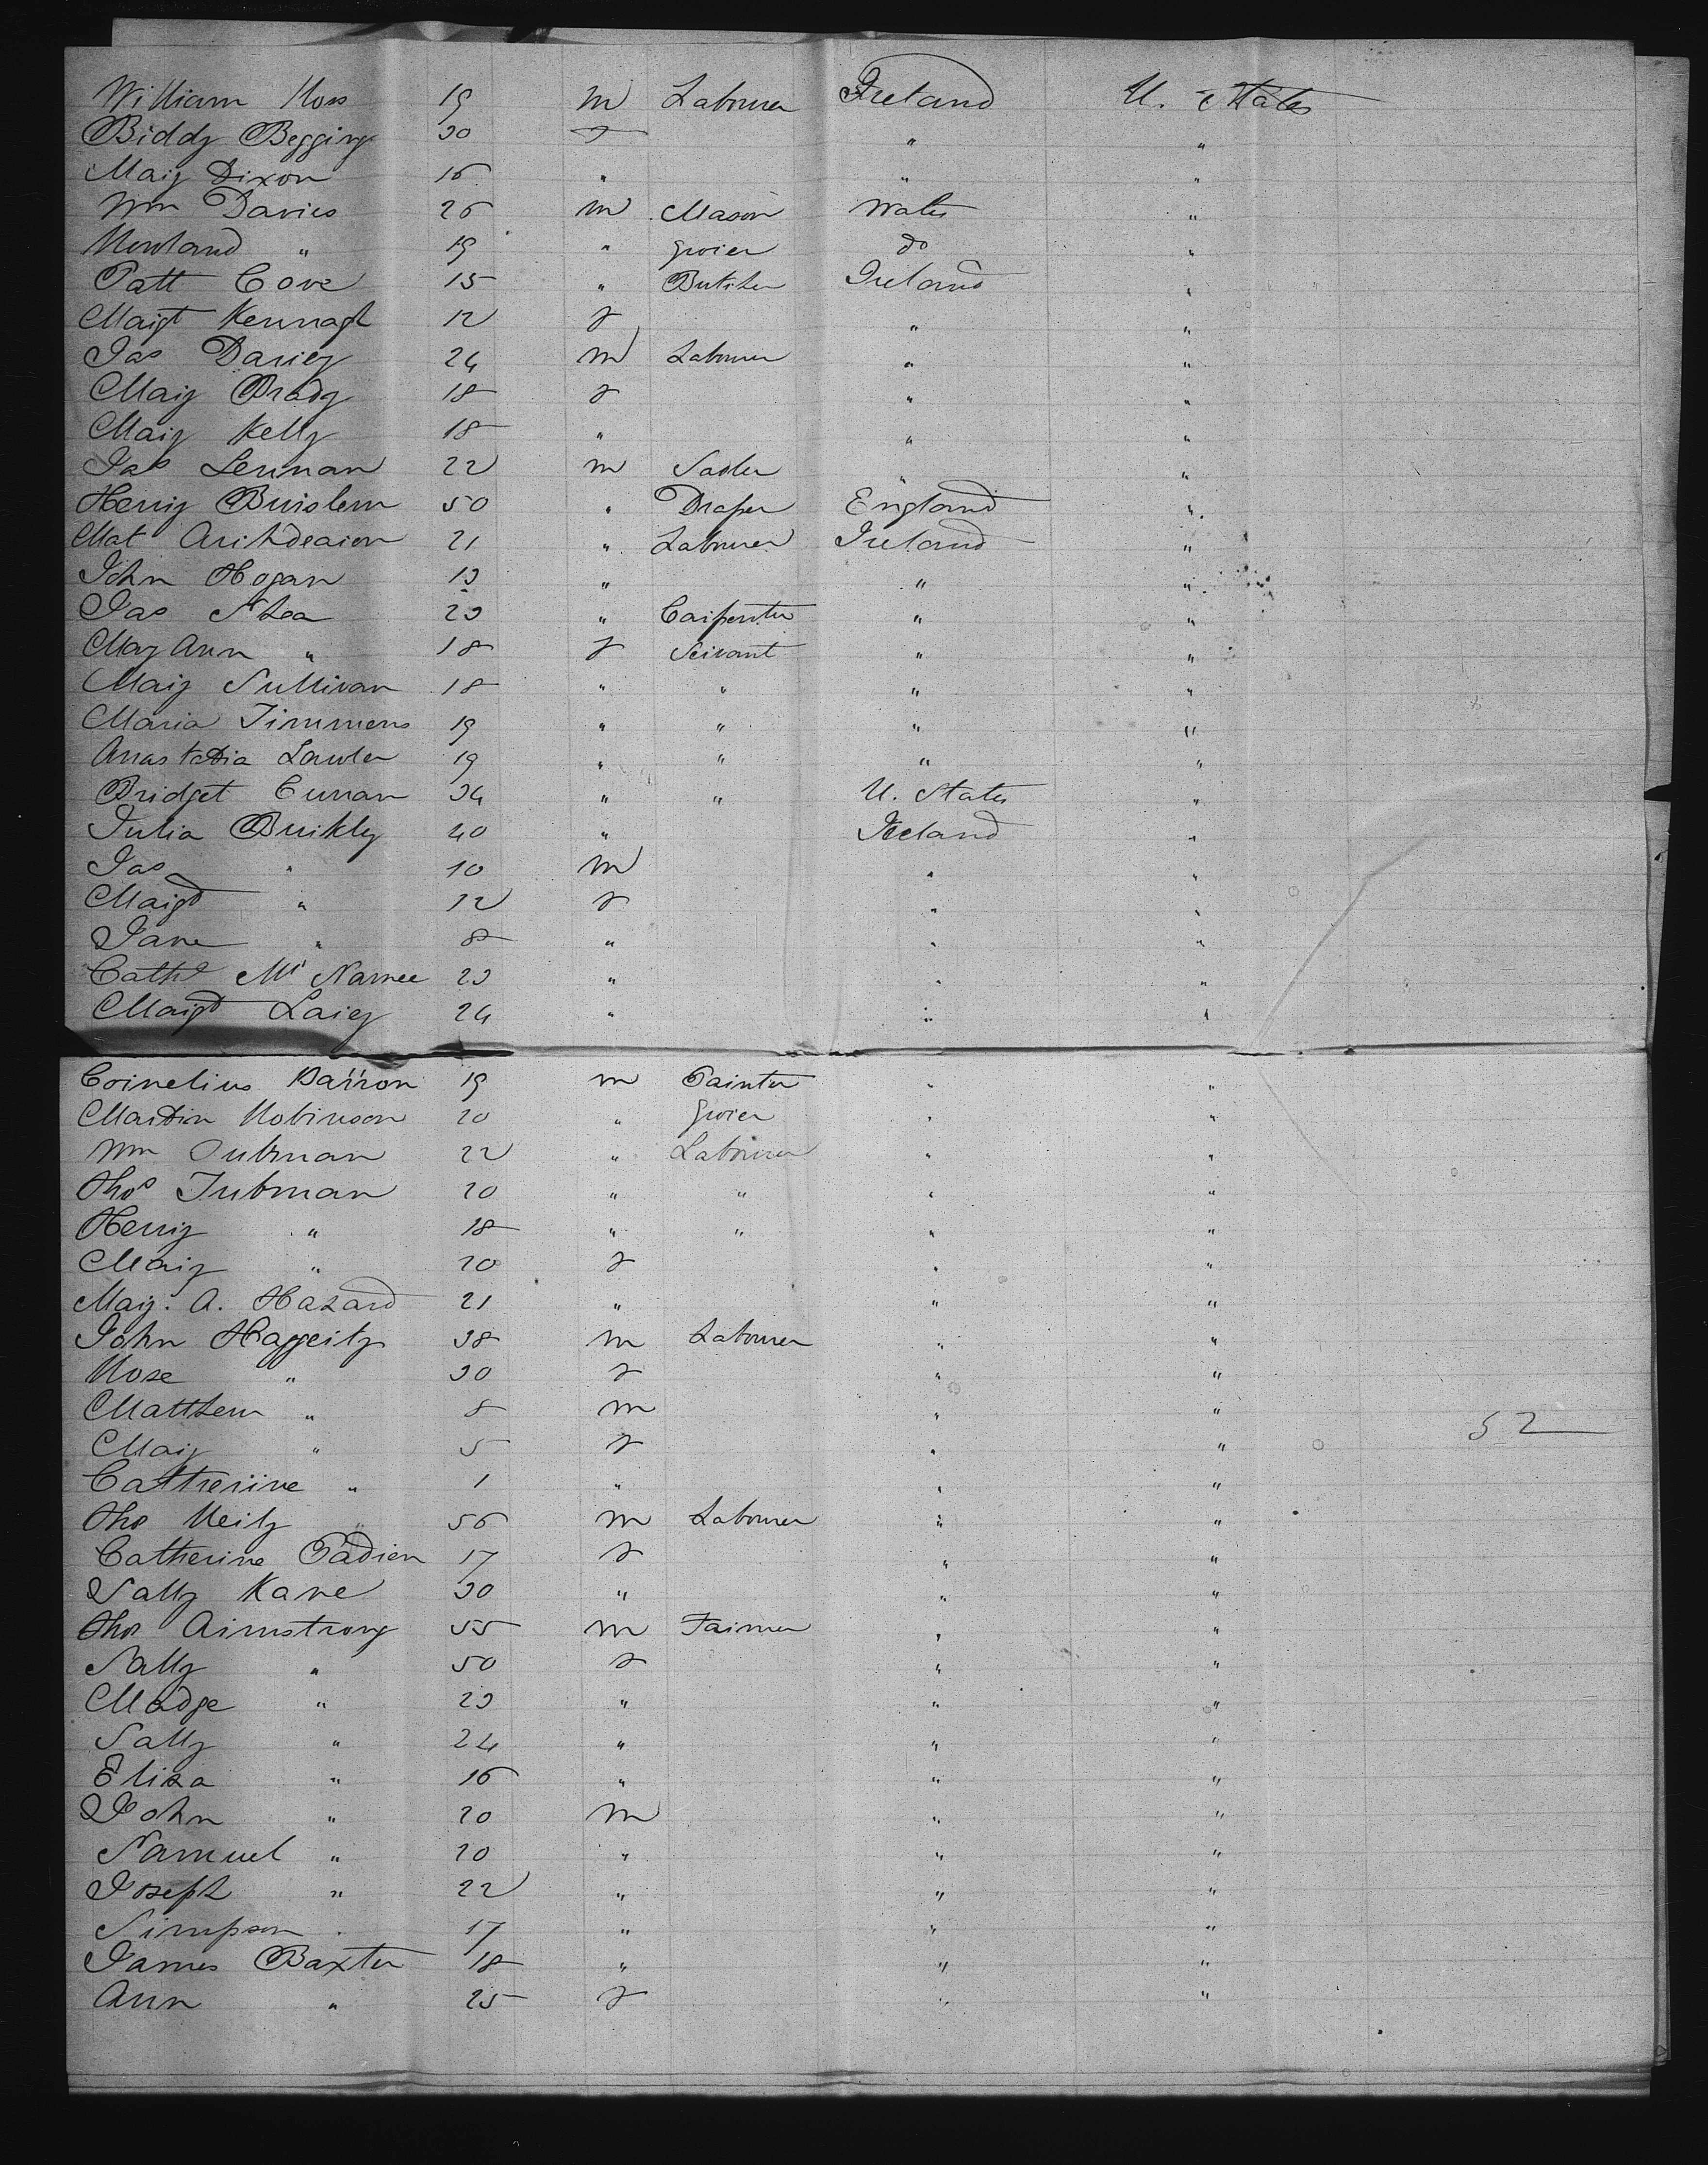 William Ross 19 m Labourer Ireland U. States
Biddy Begging 30 f " "
Mary Dixon 16 " " "
Wm Davies 26 m Mason Wales "
Rowland " 19 " Grocer do "
Patt Cove 15 " Butcher Ireland "
Margt Kennagh 12 f " "
Jas Darcy 24 m Labourer " "
Mary Brady 18 f " "
Mary Kelly 18 " " "
Jas Lennan 22 m Sadler " "
Henry Burslem 50 " Draper England "
Mat Archdeacon 21 " Labourer Ireland "
John Hogan 13 " " "
Jas Shea 23 " Carpenter " "
May Ann " 18 f Servant " "
Mary Sullivan 18 " " " "
Maria Timmens 19 " " " "
Anastatia Lawler 19 " " " "
Bridget Curran 34 " " U. States "
Julia Buckley 40 " Ireland "
Jas " 10 m " "
Margt " 12 f " "
Jane " 8 " " "
Cathe Mc Namee 23 " " "
Margt Lacey 24 " " "
Cornelius Barron 19 m Painter " "
Martin Robinson 20 " Grocer " "
Wm Tubman 22 " Labourer " "
Thos Tubman 20 " " " "
Henry " 18 " " " "
Mary " 20 f " "
Mary. A. Hazard 21 " " "
John Haggerty 38 m Labourer " "
Rose " 30 f " "
Matthew " 8 m " "
Mary " 5 f " " 52
Catherine " 1 " " "
Thos Reily 56 m Labourer " "
Catherine Padien 17 f " "
Sally Kane 30 " " "
Thos Armstrong 55 m Farmer " "
Sally " 50 f " "
Madge " 23 " " "
Sally " 24 " " "
Eliza " 16 " " "
John " 20 m " "
Samuel " 20 " " "
Joseph " 22 " " "
Simpson " 17 " " "
James Baxter 18 " " "
Ann " 25 f " "